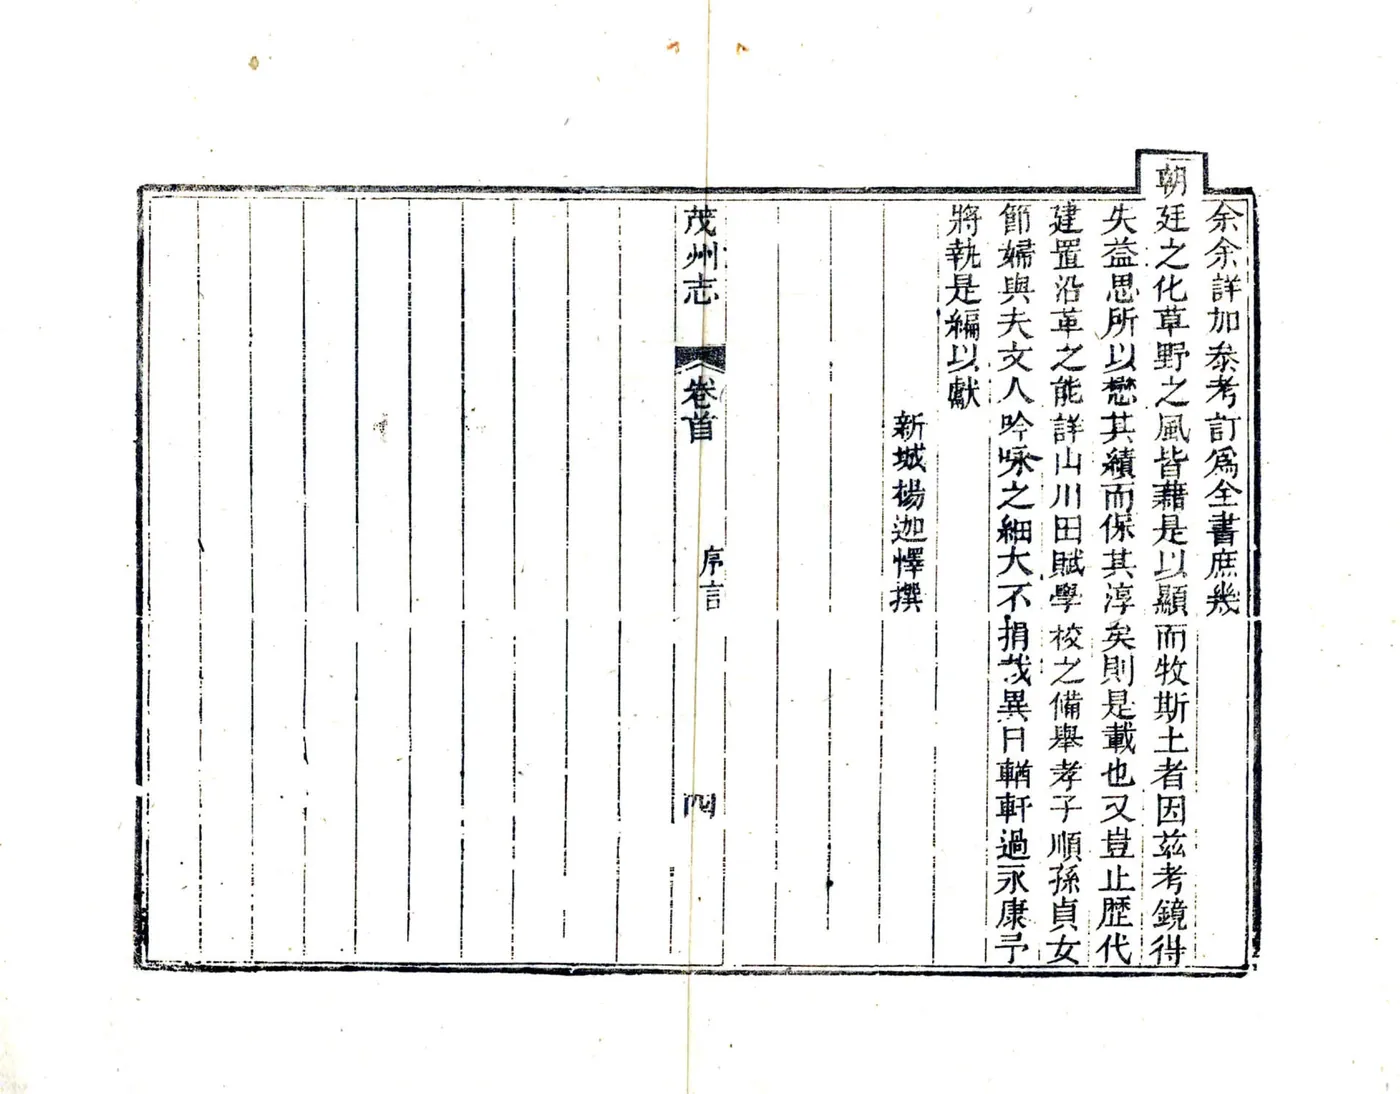 余余詳加叅考訂爲全書庶幾
朝廷之化草野之風皆藉是以顯而牧斯土者因茲考鏡得
失益思所以懋其績而保其淳矣則是載也又豈止歷代
建置沿革之能詳山川田賦學校之備舉孝子順孫貞女
節婦與夫文人吟咏之細大不捐哉異日輶軒過永康予
將執是編以獻
新城楊迦懌撰
茂州志
卷首
序言
四